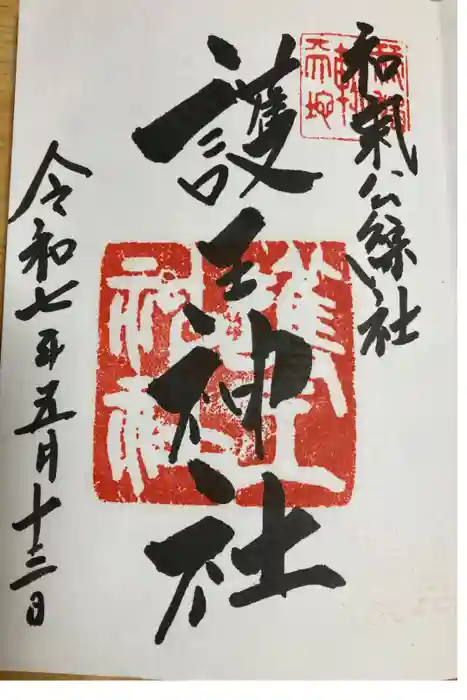 和氣公綜社
護王神社
護王神社
令和七年五月十三日